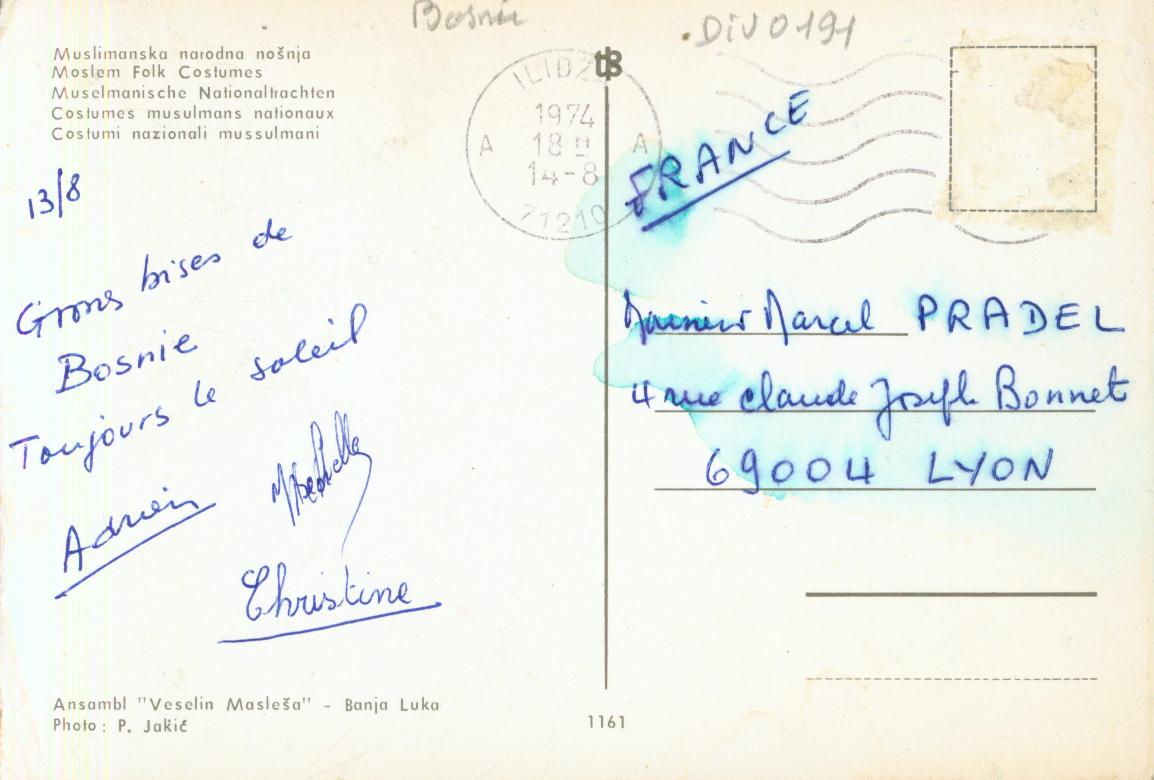 Bosnie
DIVO191
Muslimanska narodna nošnja
Moslem Folk Costumes
Muselmanische Nationaltrachten
Costumes musulmans nationaux
Costumi nazionali mussulmani
ILIDZ
1974
A 18 A
14-8
71210
13/8
Grosses bises de
Bosnie
Toujours le soleil
Adrien
Christine
FRANCE
Monsieur Marcel PRADEL
4 rue claude Joseph Bonnet
69004 LYON
Ansambl "Veselin Masleša" - Banja Luka
Photo: P. Jakić
1161